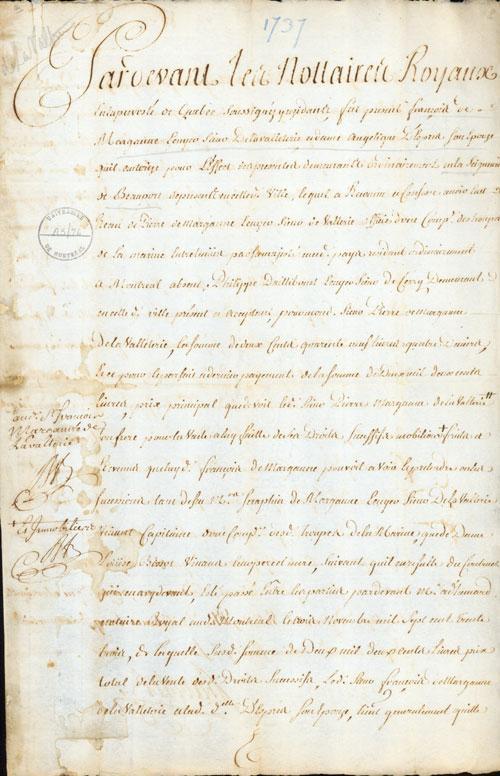 1737
Pardevant Les Nottaires Royaux
de Quebec soussignés y residants, fut present françois de
Marganne Ecuyer Sieur De Lavalterie et dame Angelique D'Esprés son Epouse
quil autorise pour L'effet des presentes demeurants ordinairement en la Seigneurie
de Beauport de present en cette Ville, lequel a Reconnu et Confessé avoir
Receu de Pierre de Margane Ecuyer Sieur de Valterie officier dans Comp.e des troupes
de la marine Entretenües par sa majesté en ce pays residant ordinairement
a Montreal absent, Philippe Dailleboust Ecuyer Sieur de Cerry Demeurant
en cette d. ville present et acceptant pour mond. Sieur Pierre de Margane
De la Valterie, la somme de deux Cents quarante neuf livres quatre
Et ce pour le parfait et dernier payement de la somme de Deux mil deux cents
livres, prix principal que devoit led. Sieur Pierre Margane de la Valterie
son frere pour la Vente a luy faitte de ses Droits Successifs mobiliers + fruits et
Revenus que led. françois de Marganne pouvoit avoir et pretendre en les
successions tant de feu M.re Seraphin de Margane Ecuyer Sieur De la Valterie
Vivant Capitaine d'une Comp.e des d. troupes de la Marine, que de Dame
Louise Bissot Vivants ses pere et mere, suivant quil en resulte du Contract
cy devant, Et passé Entre les parties pardevant M.e
notaire Royal aud. Montreal le trois Novembre mil sept cent trente
trois, de laquelle susd. somme de Deux mil deux cents livres prix
total de la Vente desd. Droits Successifs, Led. Sieur françois de Margane
de la Valterie et lad. d.lle D'Esprés son Epouse, tiennent generalement quitte
aud. S.r françois
Margane de
Lavalterie
+ Et Immobiliers
UNIVERSITÉ
DE MONTRÉAL